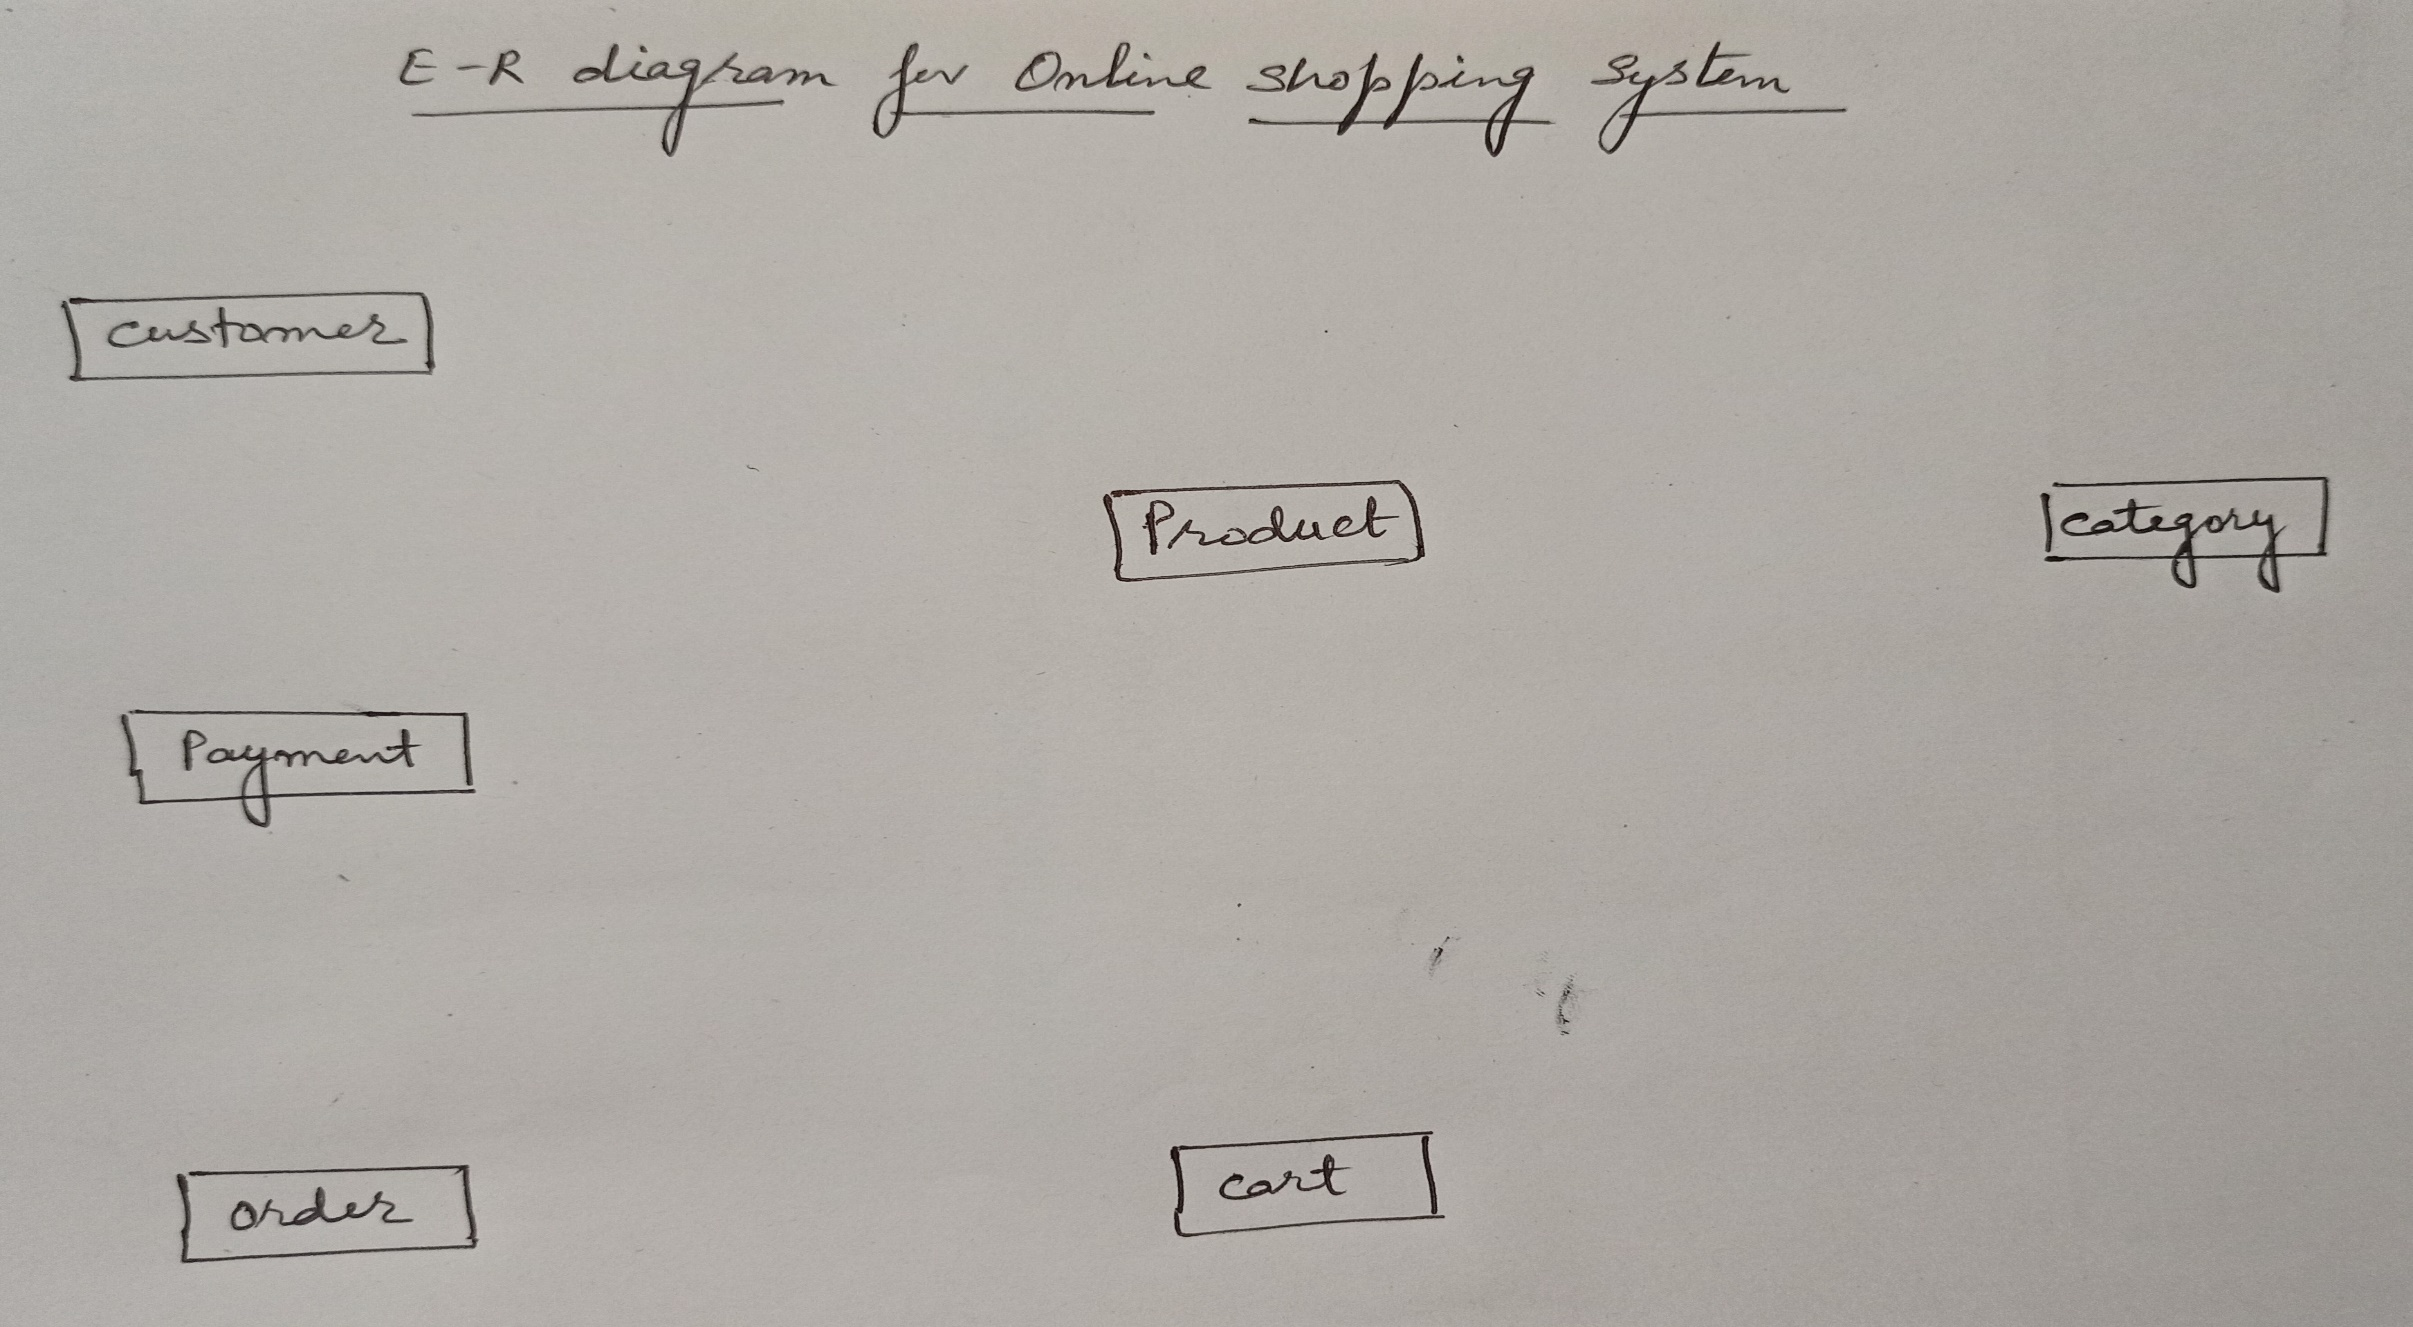 E-R diagram for Online shopping System
customer
Product
category
Payment
order
cart